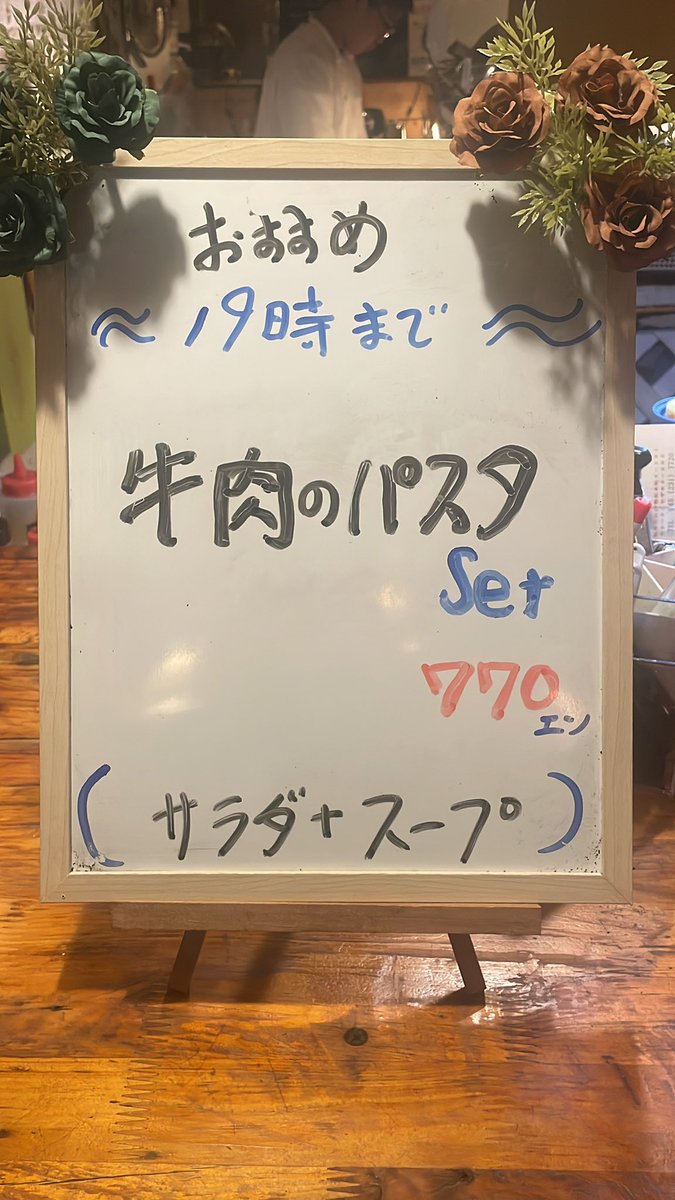 おすすめ
〜19時まで〜
牛肉のパスタ
Set
770
エン
(サラダ+スープ)